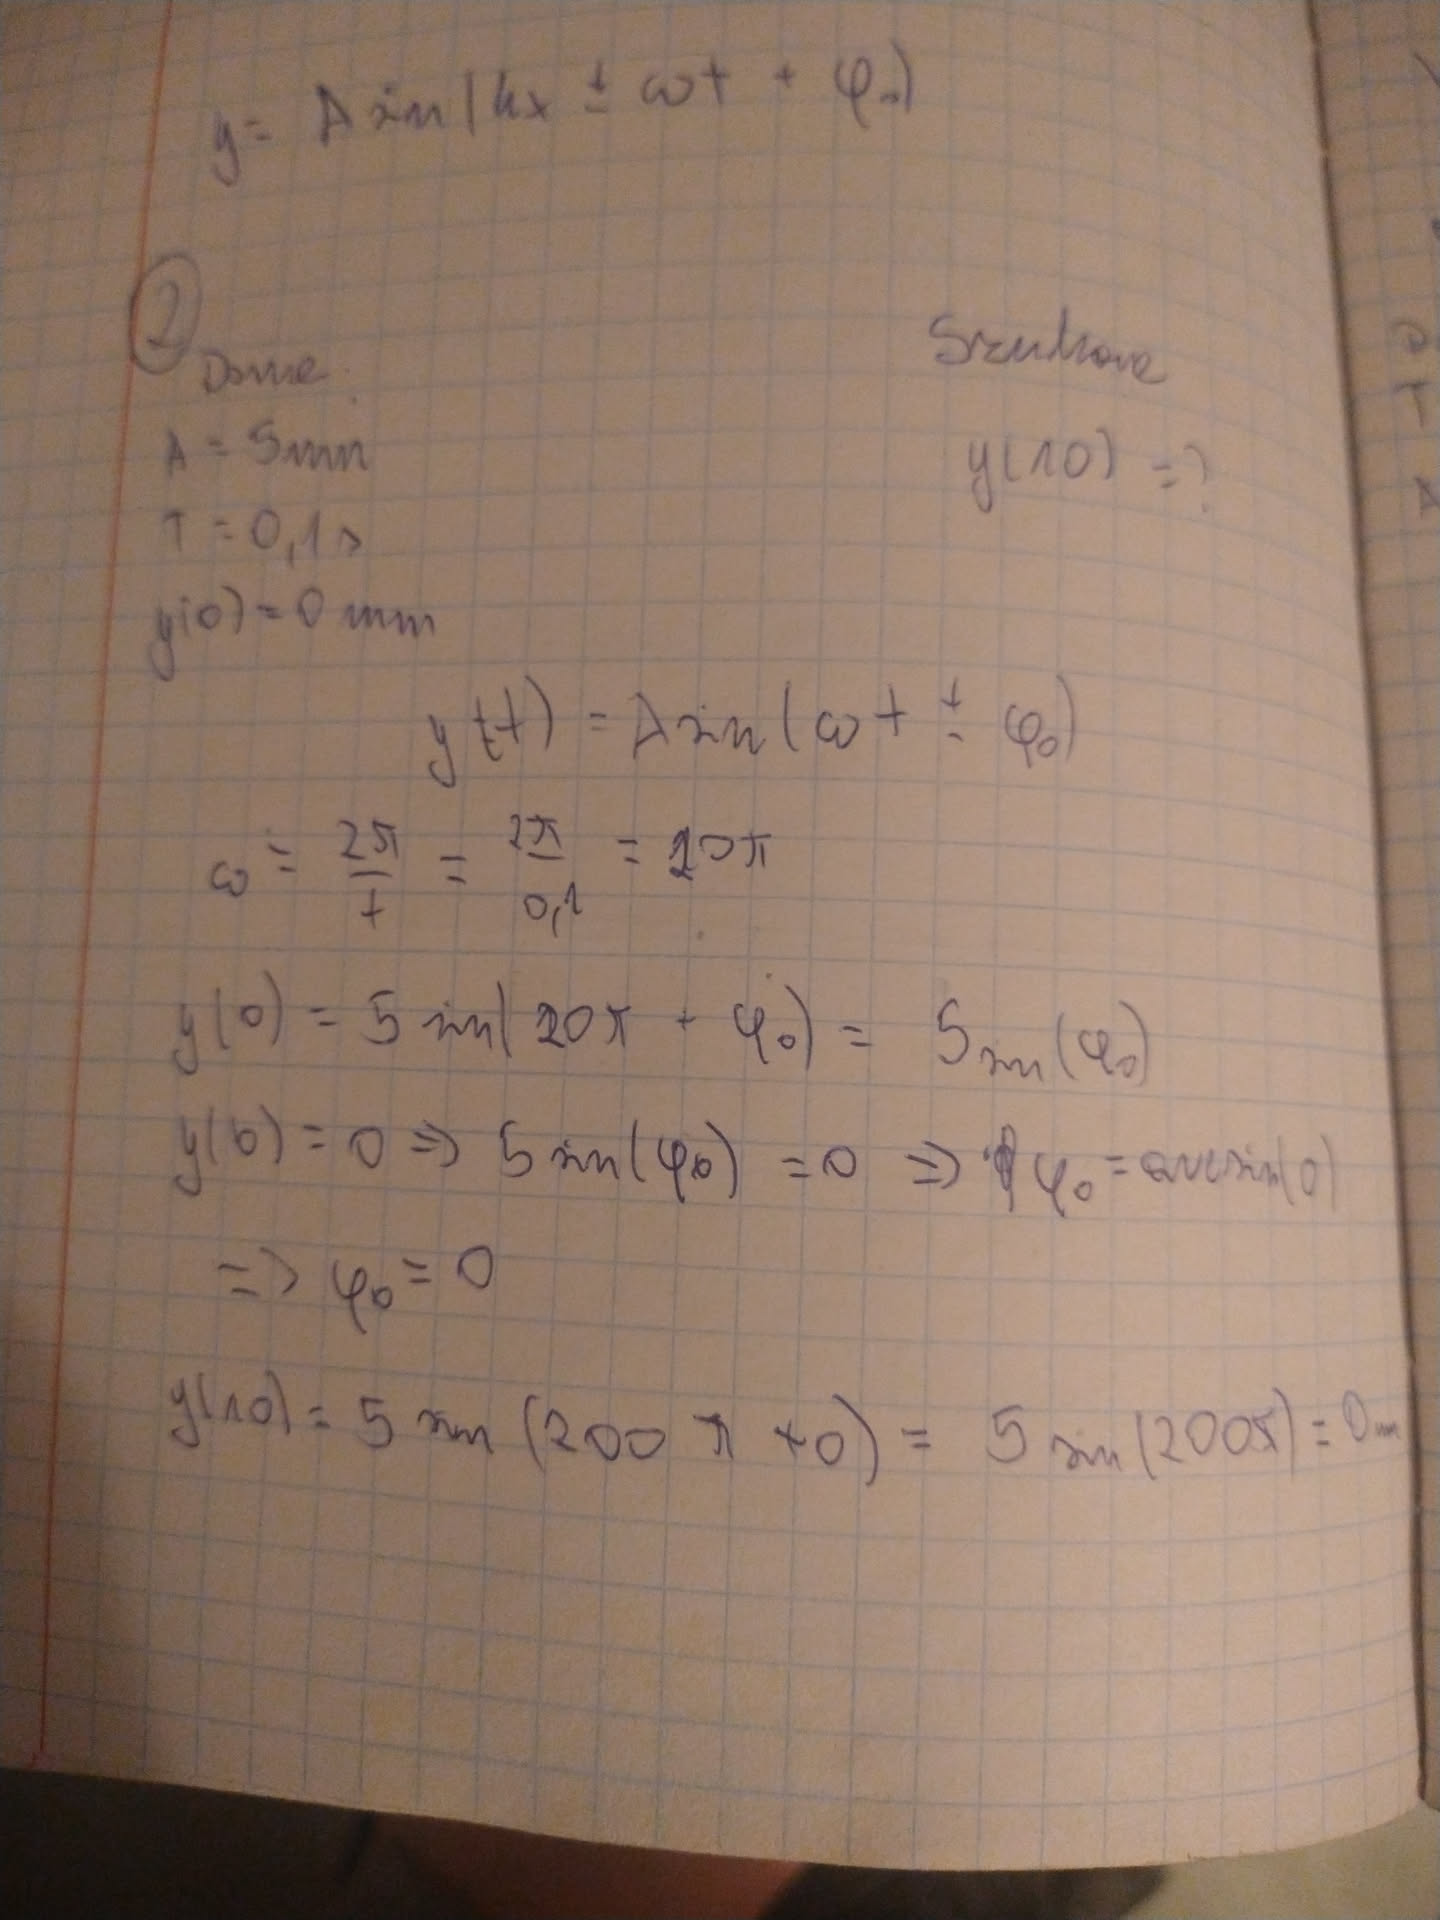 y = A sin(kx ± ωt + φ₀)
2
Dane
Szukane
A = 5mm
y(10) = ?
T = 0,1s
y(0) = 0 mm
y(t) = A sin(ωt ± φ₀)
ω = 2π/T = 2π/0,1 = 20π
y(0) = 5 sin(20π + φ₀) = 5 sin(φ₀)
y(0) = 0 => 5 sin(φ₀) = 0 => φ₀ = arcsin(0)
=> φ₀ = 0
y(10) = 5 sin(200π + 0) = 5 sin(200π) = 0m